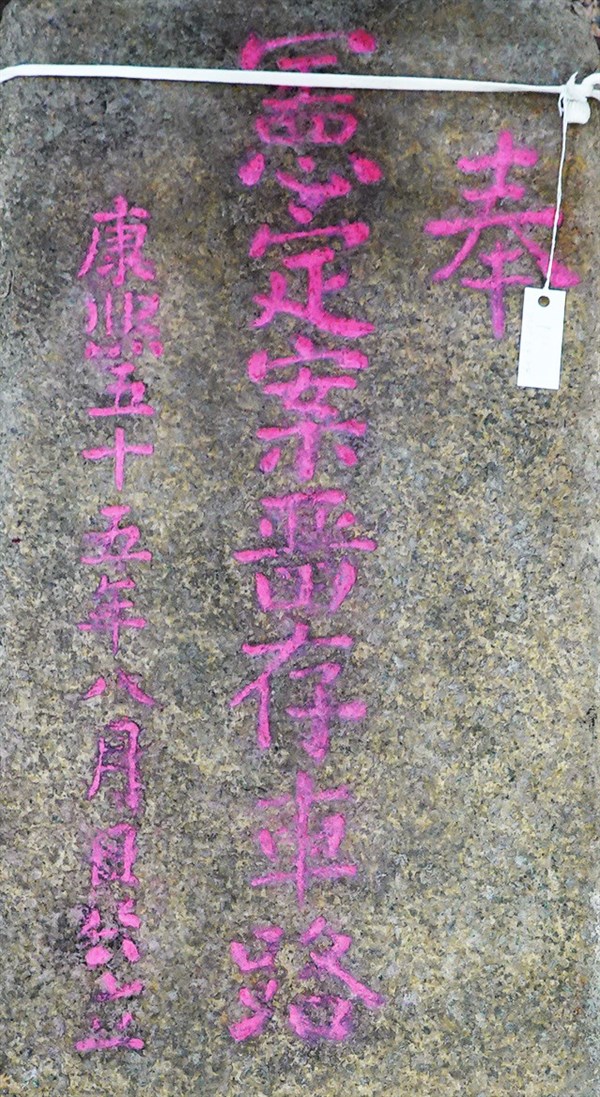 奉
憲定案畱存車路
康熙五十五年八月日公立